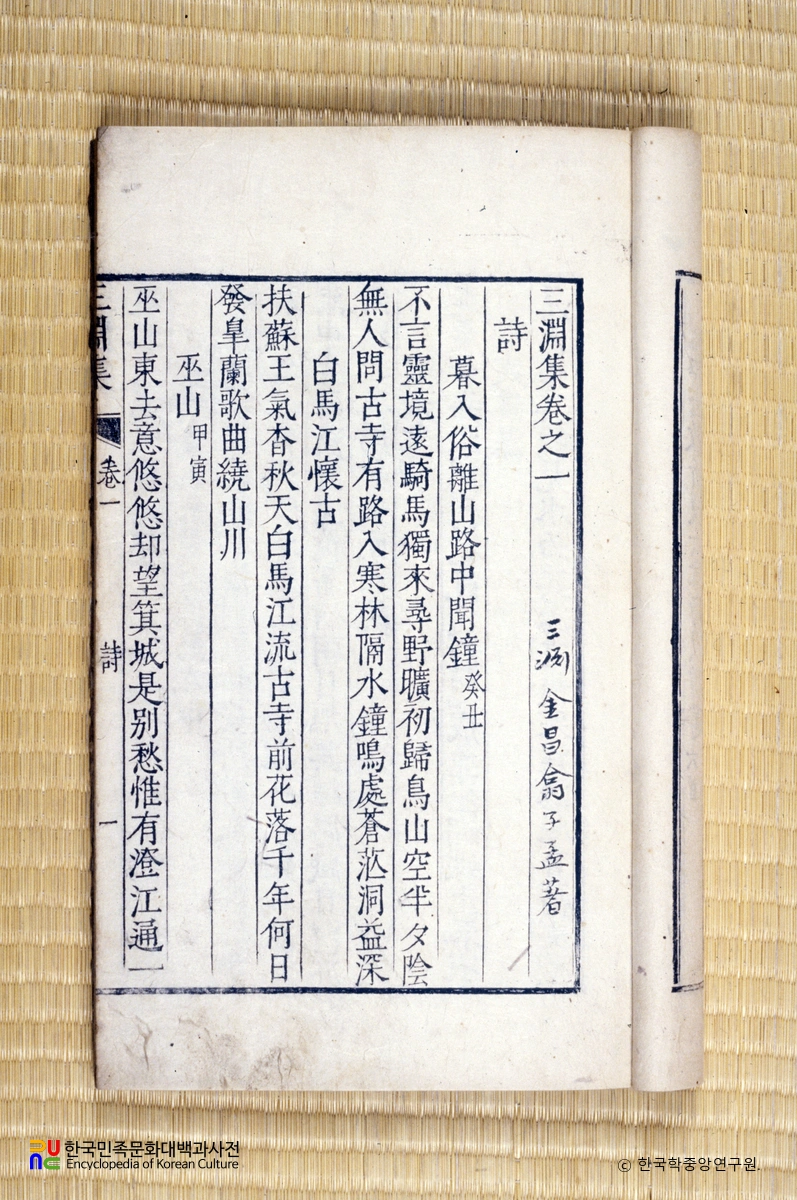 三淵集卷之一
三淵金昌翕子益著
詩
暮入俗離山路中聞鐘癸丑
不言靈境遠騎馬獨來尋野曠初歸鳥山空半夕陰
無人問古寺有路入寒林隔水鐘鳴處蒼茫洞益深
白馬江懷古
扶蘇王氣杳秋天白馬江流古寺前花落千年何日
發臯蘭歌曲繞山川
巫山甲寅
巫山東去意悠悠却望箕城是別愁惟有澄江通一
三淵集 卷一 詩 一
한국민족문화대백과사전
Encyclopedia of Korean Culture
ⓒ 한국학중앙연구원.